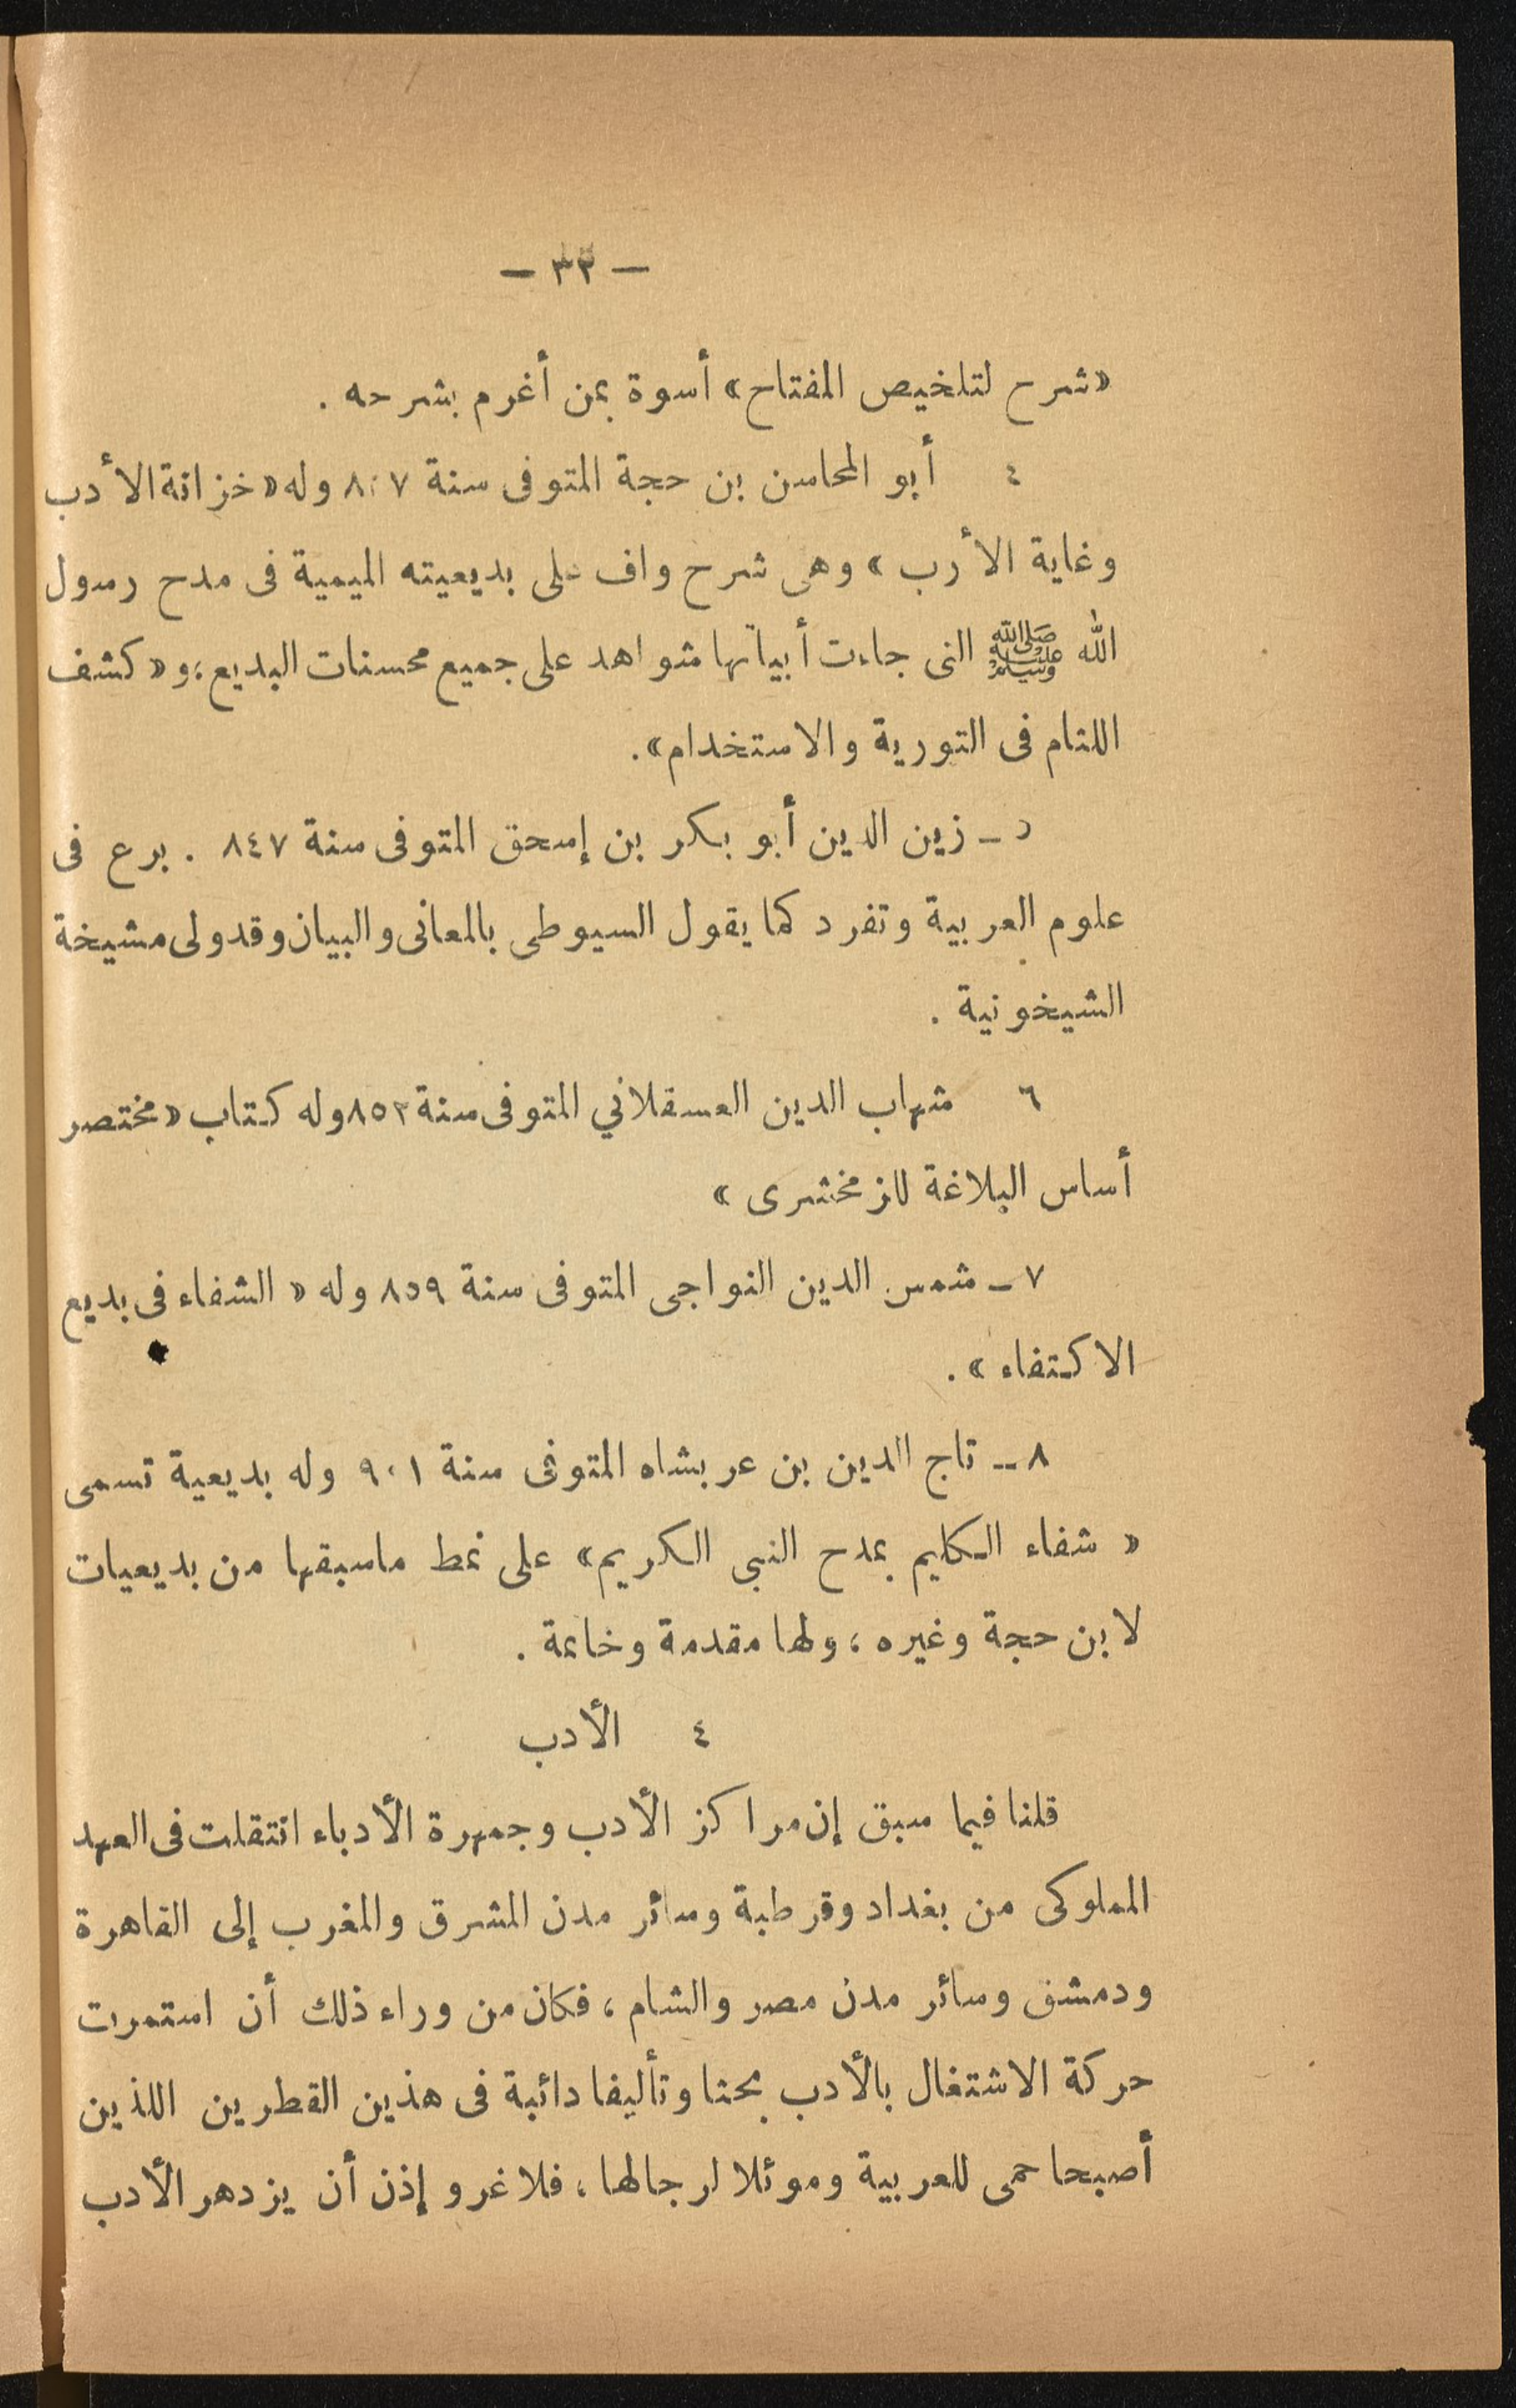 — ٣٣ —
«شرح لتلخيص المفتاح» أسوة بمن أغرم بشرحه .
٤ أبو المحاسن بن حجة المتوفى سنة ٨٠٧ وله «خزانة الأدب
وغاية الأرب» وهى شرح واف على بديعيته الميمية فى مدح رسول
الله ﷺ التى جاءت أبياتها شواهد على جميع محسنات البديع، و«كشف
اللثام فى التورية والاستخدام».
٥ ـ زين الدين أبو بكر بن إسحق المتوفى سنة ٨٤٧ . برع فى
علوم العربية وتفرد كما يقول السيوطى بالمعانى والبيان وقد ولى مشيخة
الشيخونية .
٦ شهاب الدين العسقلاني المتوفى سنة ٨٥٢ وله كتاب «مختصر
أساس البلاغة للزمخشرى »
٧ ـ شمس الدين النواجى المتوفى سنة ٨٥٩ وله « الشفاء فى بديع
الاكتفاء » .
٨ ـ تاج الدين بن عربشاه المتوفى سنة ٩٠١ وله بديعية تسمى
« شفاء الكليم بمدح النبى الكريم» على نمط ماسبقها من بديعيات
لابن حجة وغيره ، ولها مقدمة وخاتمة .
٤ الأدب
قلنا فيما سبق إن مراكز الأدب وجمهرة الأدباء انتقلت فى العهد
المملوكى من بغداد وقرطبة وسائر مدن المشرق والمغرب إلى القاهرة
ودمشق وسائر مدن مصر والشام ، فكان من وراء ذلك أن استمرت
حركة الاشتغال بالأدب بحثا وتأليفا دائبة فى هذين القطرين اللذين
أصبحا حمى للعربية وموئلا لرجالها ، فلا غرو إذن أن يزدهر الأدب